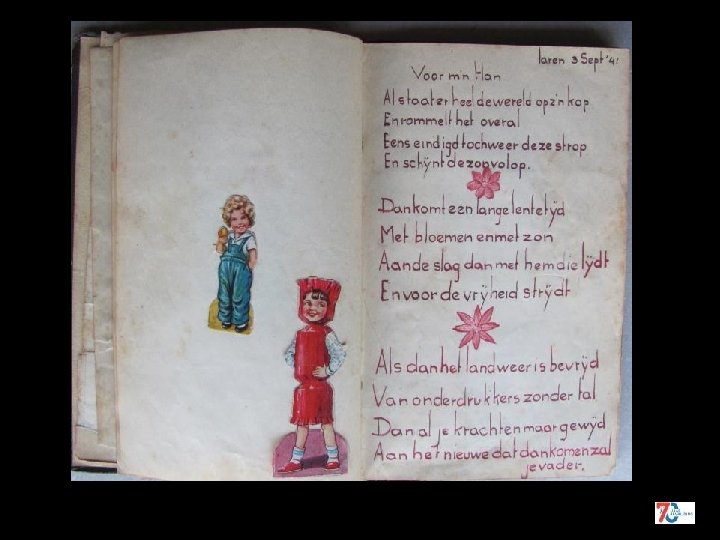 laren 3 Sept '41
Voor m'n Han
Al staat er heel de wereld op z'n kop
En rommelt het overal
Eens eindigd toch weer deze strop
En schijnt de zon volop.
Dan komt een lange lentetijd
Met bloemen en met zon
Aan de slag dan met hem die lijdt
En voor de vrijheid strijdt
Als dan het land weer is bevrijd
Van onderdrukkers zonder tal
Dan al je krachten maar gewijd
Aan het nieuwe dat dan komen zal
je vader.
70